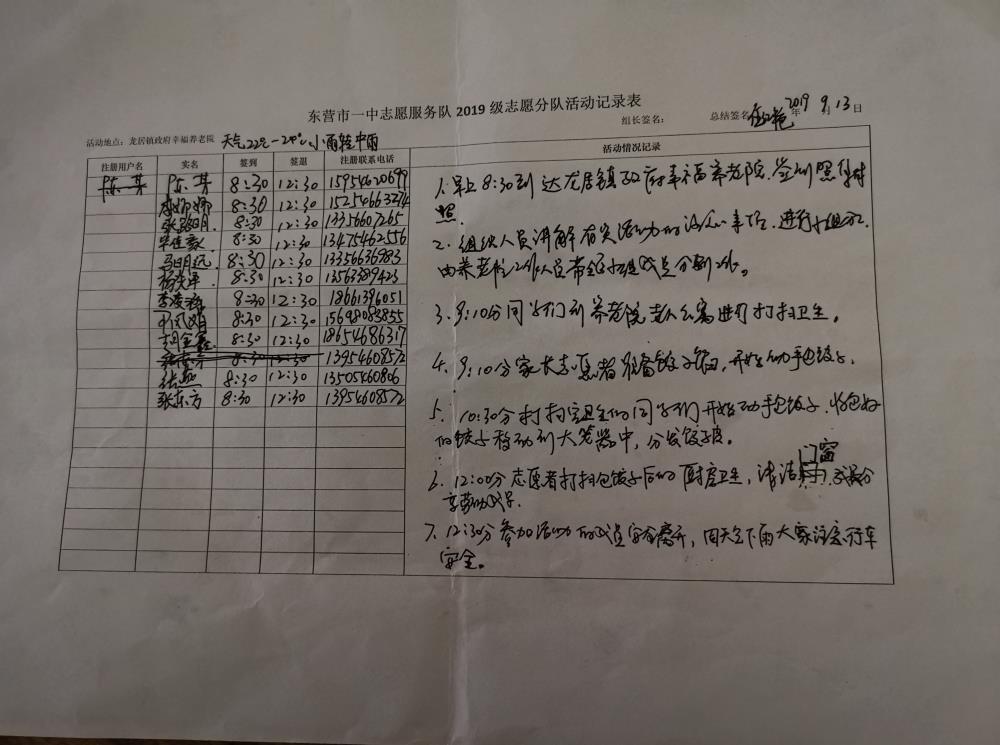 东营市一中志愿服务队2019级志愿分队活动记录表
组长签名: 总结签名 2019 9月13日
活动地点:龙居镇政府幸福养老院 天气22℃-29℃小雨转中雨
注册用户名 实名 签到 签退 注册联系电话 活动情况记录
陈 8:30 12:30 15954620699
李娜娜 8:30 12:30
张 8:30 12:30 13356607265
8:30 12:30 13475462556
马明远 8:30 12:30 13356636983
杨 8:30 12:30 13563389423
李凌 8:30 12:30 18661396051
8:30 12:30 15698083855
胡金鑫 8:30 12:30 18654686317
8:30 12:30 13954608572
张 8:30 12:30 13505460806
张东方 8:30 12:30 13954608572
1.早上8:30到达龙居镇政府幸福养老院.签到照
照.
2.组织人员讲解有关活动的注意事项.进行分组.
由养老院工作人员带领小组成员分到工作。
3.9:10分同学们到养老院老人公寓进行打扫卫生。
4.9:10分家长志愿者准备饺子馅,开始动手包饺子.
5.10:30分打扫完卫生的同学们开始动手包饺子.将包好
的饺子移动到大笼器中,分发饺子皮。
6.12:00分志愿者打扫包饺子后的厨房卫生,清洁门窗.
享劳动成果.
7.12:30分参加活动的成员安全离开,因天下雨大家注意行车
安全。